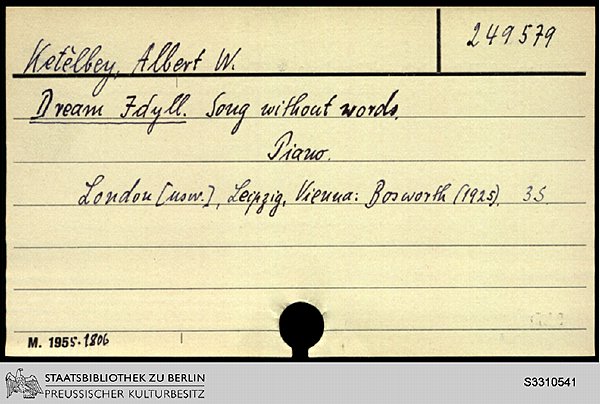 249579
Ketèlbey, Albert W.
Dream Idyll. Song without words.
Piano.
London [usw.], Leipzig, Vienna: Bosworth (1925). 3 S.
M. 1955.1806
STAATSBIBLIOTHEK ZU BERLIN
PREUSSISCHER KULTURBESITZ
S3310541